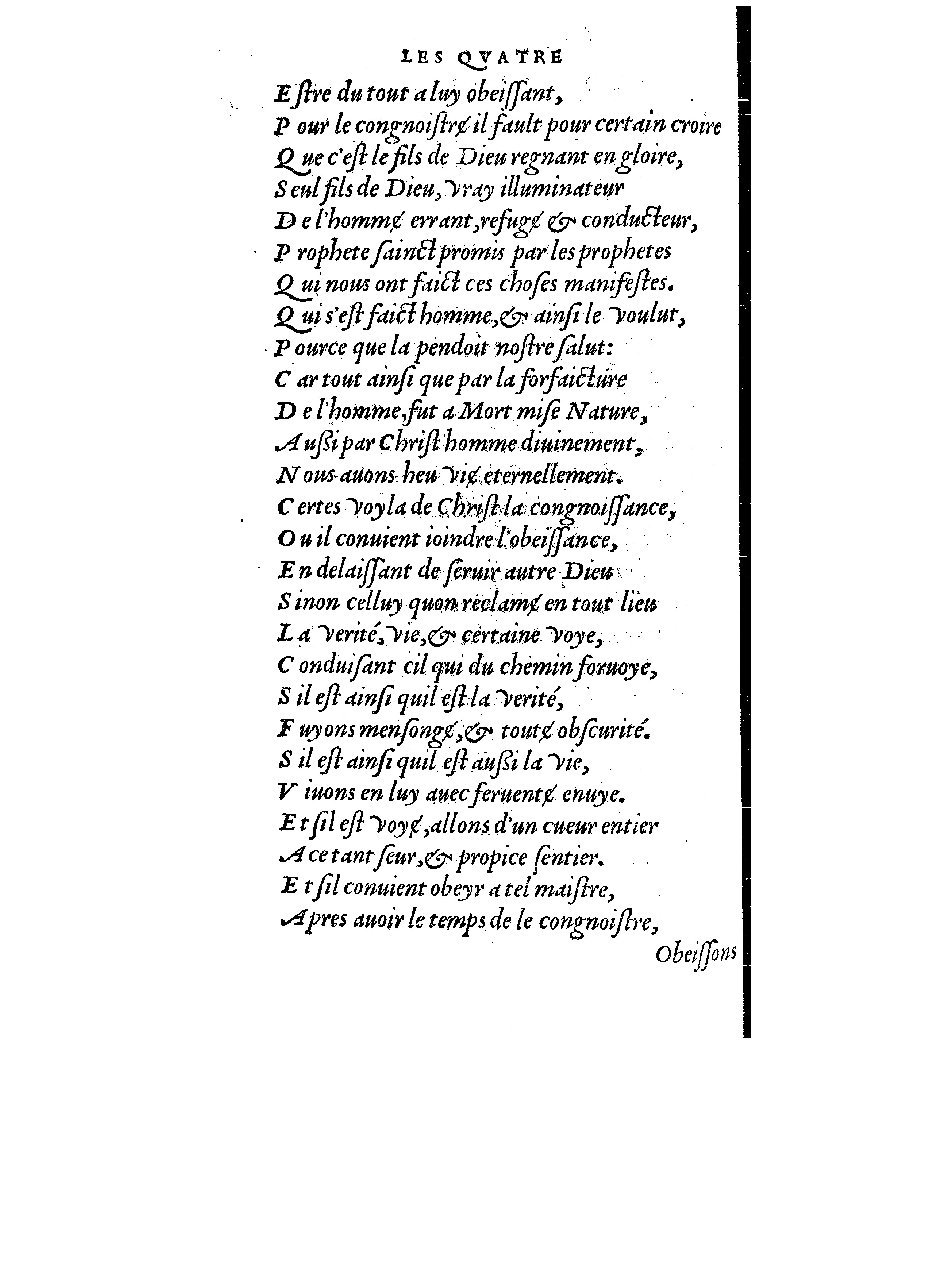 LES QVATRE
Eſtre du tout a luy obeiſſant,
Pour le congnoiſtrɇ il fault pour certain croire
Que c'eſt le fils de Dieu regnant en gloire,
Seul fils de Dieu, vray illuminateur
De l'hommɇ errant, refugɇ & conducteur,
Prophete ſainct promis par les prophetes
Qui nous ont faict ces choſes manifeſtes.
Qui s'eſt faict homme, & ainſi le voulut,
Pource que la pendoit noſtre ſalut:
Car tout ainſi que par la forfaicture
De l'homme, fut a Mort miſe Nature,
Außi par Chriſt homme diuinement,
Nous auons heu viɇ eternellement.
Certes voyla de Chriſt la congnoiſſance,
Ou il conuient ioindre l'obeiſſance,
En delaiſſant de ſeruir autre Dieu
Sinon celluy quon reclamɇ en tout lieu
La verité, vie, & certaine voye,
Conduiſant cil qui du chemin foruoye,
Sil eſt ainſi quil eſt la verité,
Fuyons menſongɇ, & toutɇ obſcurité.
Sil eſt ainſi quil eſt außi la vie,
Viuons en luy auec feruentɇ enuye.
Et ſil eſt voyɇ, allons d'un cueur entier
A ce tant ſeur, & propice ſentier.
Et ſil conuient obeyr a tel maiſtre,
Apres auoir le temps de le congnoiſtre,
Obeiſſons